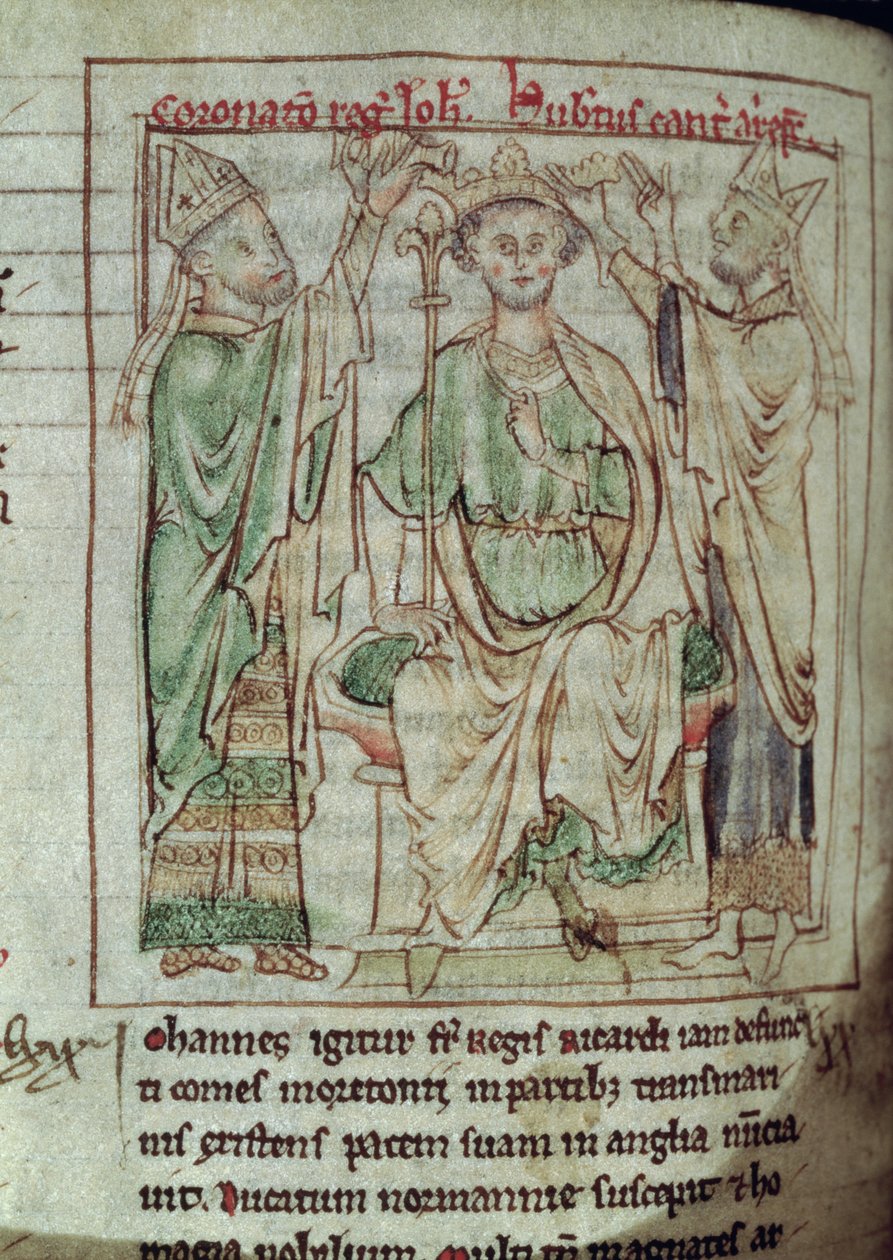 Coronatō reg̃ Joh̃. Hub̃tus cant̃ ar̃ep̃c̃.
Ohannes igitur fr̃ Regis Ricardi iam defunc
ti comes moretonii in partibꝫ transmari
nis existens pacem suam in anglia nūcia
uit. Ducatum normannie suscepit ⁊ ho
magia nobilium. Multi tñ magnates ar